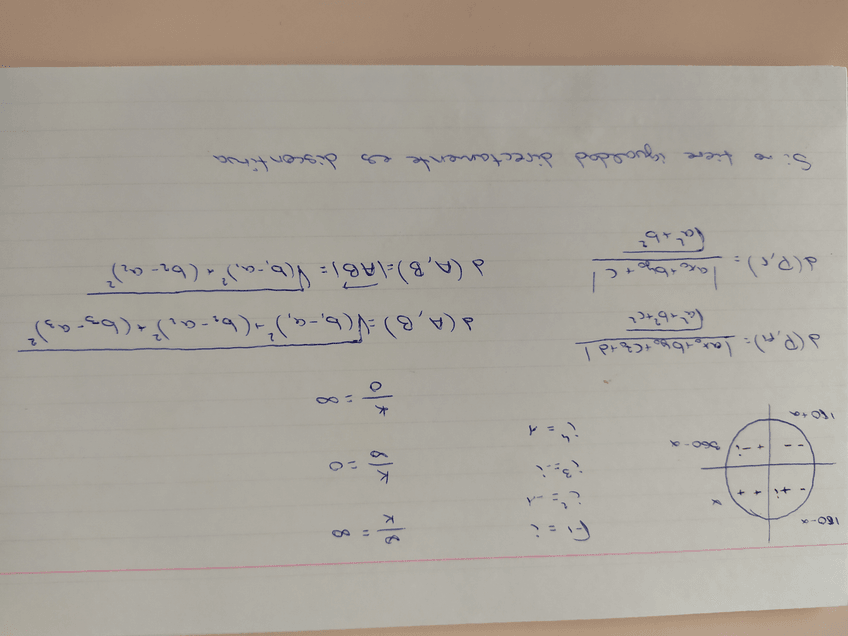 180-α
α
- + + +
- - + -
180+α
360-α
√-1 = i
i² = -1
i³ = -i
i⁴ = 1
∞/k = ∞
k/∞ = 0
k/0 = ∞
d(P,π) = |ax₀+by₀+cz₀+d| / √a²+b²+c²
d(A,B) = √(b₁-a₁)²+(b₂-a₂)²+(b₃-a₃)²
d(P,r) = |ax₀+by₀+c| / √a²+b²
d(A,B) = |AB| = √(b₁-a₁)²+(b₂-a₂)²
Si no tiene igualdad directamente es discontinua